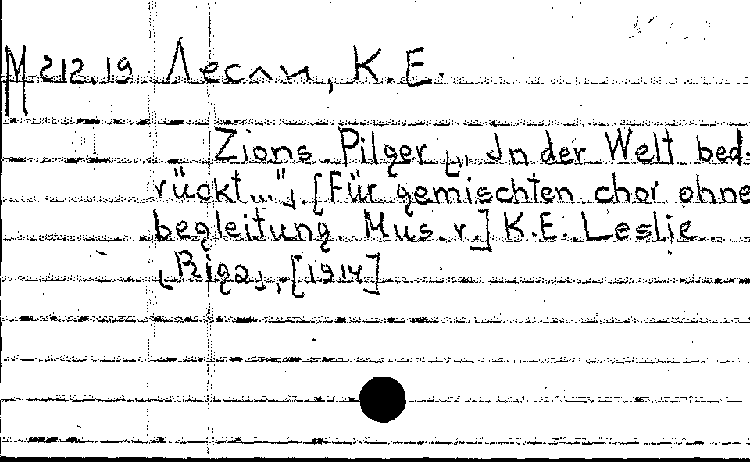 М 212.19 Лесли, К.Е.
Zions Pilger [„ In der Welt bed-
rückt..."]. [Für gemischten chor ohne
begleitung. Mus. v.] K.E. Leslie
[Riga], [1914]